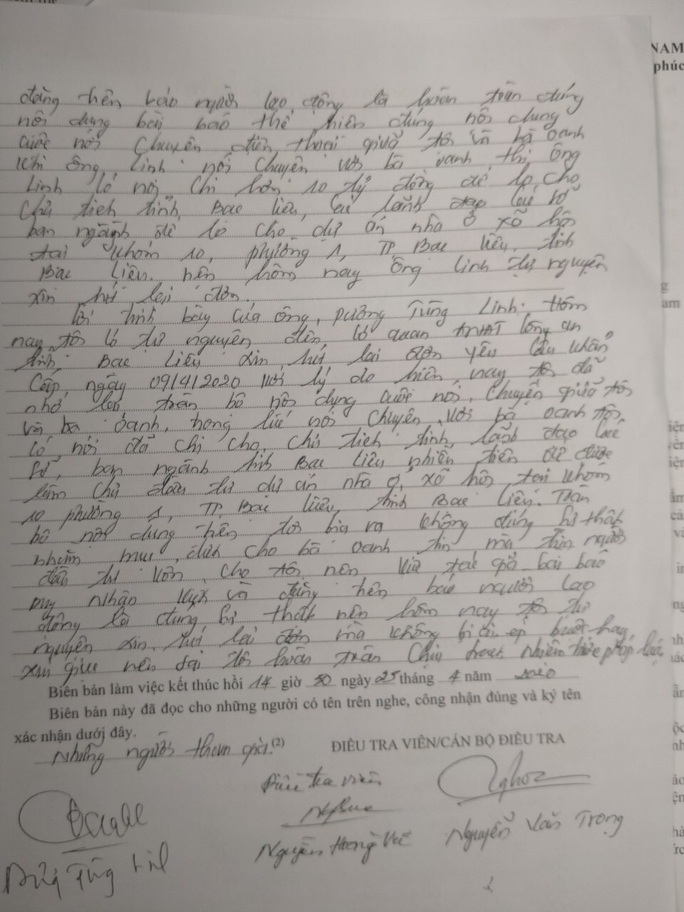 NAM
phúc
đăng trên báo người lao động là hoàn toàn đúng
nội dung bài báo thể hiện đúng nội dung
cuộc nói chuyện điện thoại giữa tôi và bà oanh
khi ông Linh nói chuyện với bà oanh thì ông
Linh có nói chi hơn 10 tỷ đồng để lo cho
chủ tịch tỉnh, Bạc liêu, lãnh đạo các sở
ban ngành để lo cho dự án nhà ở xã hội
tại khóm 10, phường 1, TP Bạc liêu, tỉnh
Bạc Liêu. nên hôm nay ông Linh tự nguyện
xin rút lại đơn.
trình bày của ông Dương Trùng Linh: Hôm
nay tôi có tự nguyện đến cơ quan CSĐT công an
tỉnh Bạc Liêu xin rút lại đơn yêu cầu khẩn
Cấp ngày 09/4/2020 với lý do hiện nay tôi đã
nhớ lại toàn bộ nội dung cuộc nói chuyện giữa tôi
và bà oanh, trong lúc nói chuyện với bà oanh tôi
có nói đã chi cho chủ tịch tỉnh, lãnh đạo các
sở, ban ngành tỉnh Bạc liêu nhiều tiền để được
làm chủ đầu tư dự án nhà ở xã hội tại khóm
10 phường 1, TP. Bạc liêu, tỉnh Bạc liêu. Toàn
bộ nội dung trên tôi bịa ra không đúng sự thật
nhằm mục đích cho bà oanh tin mà tìm người
đầu tư vốn cho tôi nên tác giả bài báo
Duy Nhân và đăng trên báo người lao
động là đúng sự thật nên hôm nay tôi tự
nguyện xin rút lại đơn mà không bị ai ép buộc hay
xúi giục nếu sai tôi hoàn toàn chịu trách nhiệm trước pháp luật.
Biên bản làm việc kết thúc hồi 14 giờ 50 ngày 25 tháng 4 năm 2020
Biên bản này đã đọc cho những người có tên trên nghe, công nhận đúng và ký tên
xác nhận dưới đây.
Những người tham gia.(2)
ĐIỀU TRA VIÊN/CÁN BỘ ĐIỀU TRA
Điều tra viên
Nguyễn Văn Trọng
2